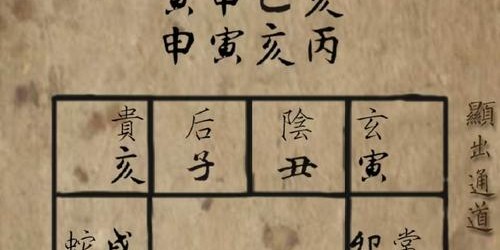 寅申巳亥
申寅亥丙
貴后陰玄
亥子丑寅
蛇戌
卯
顯出通道